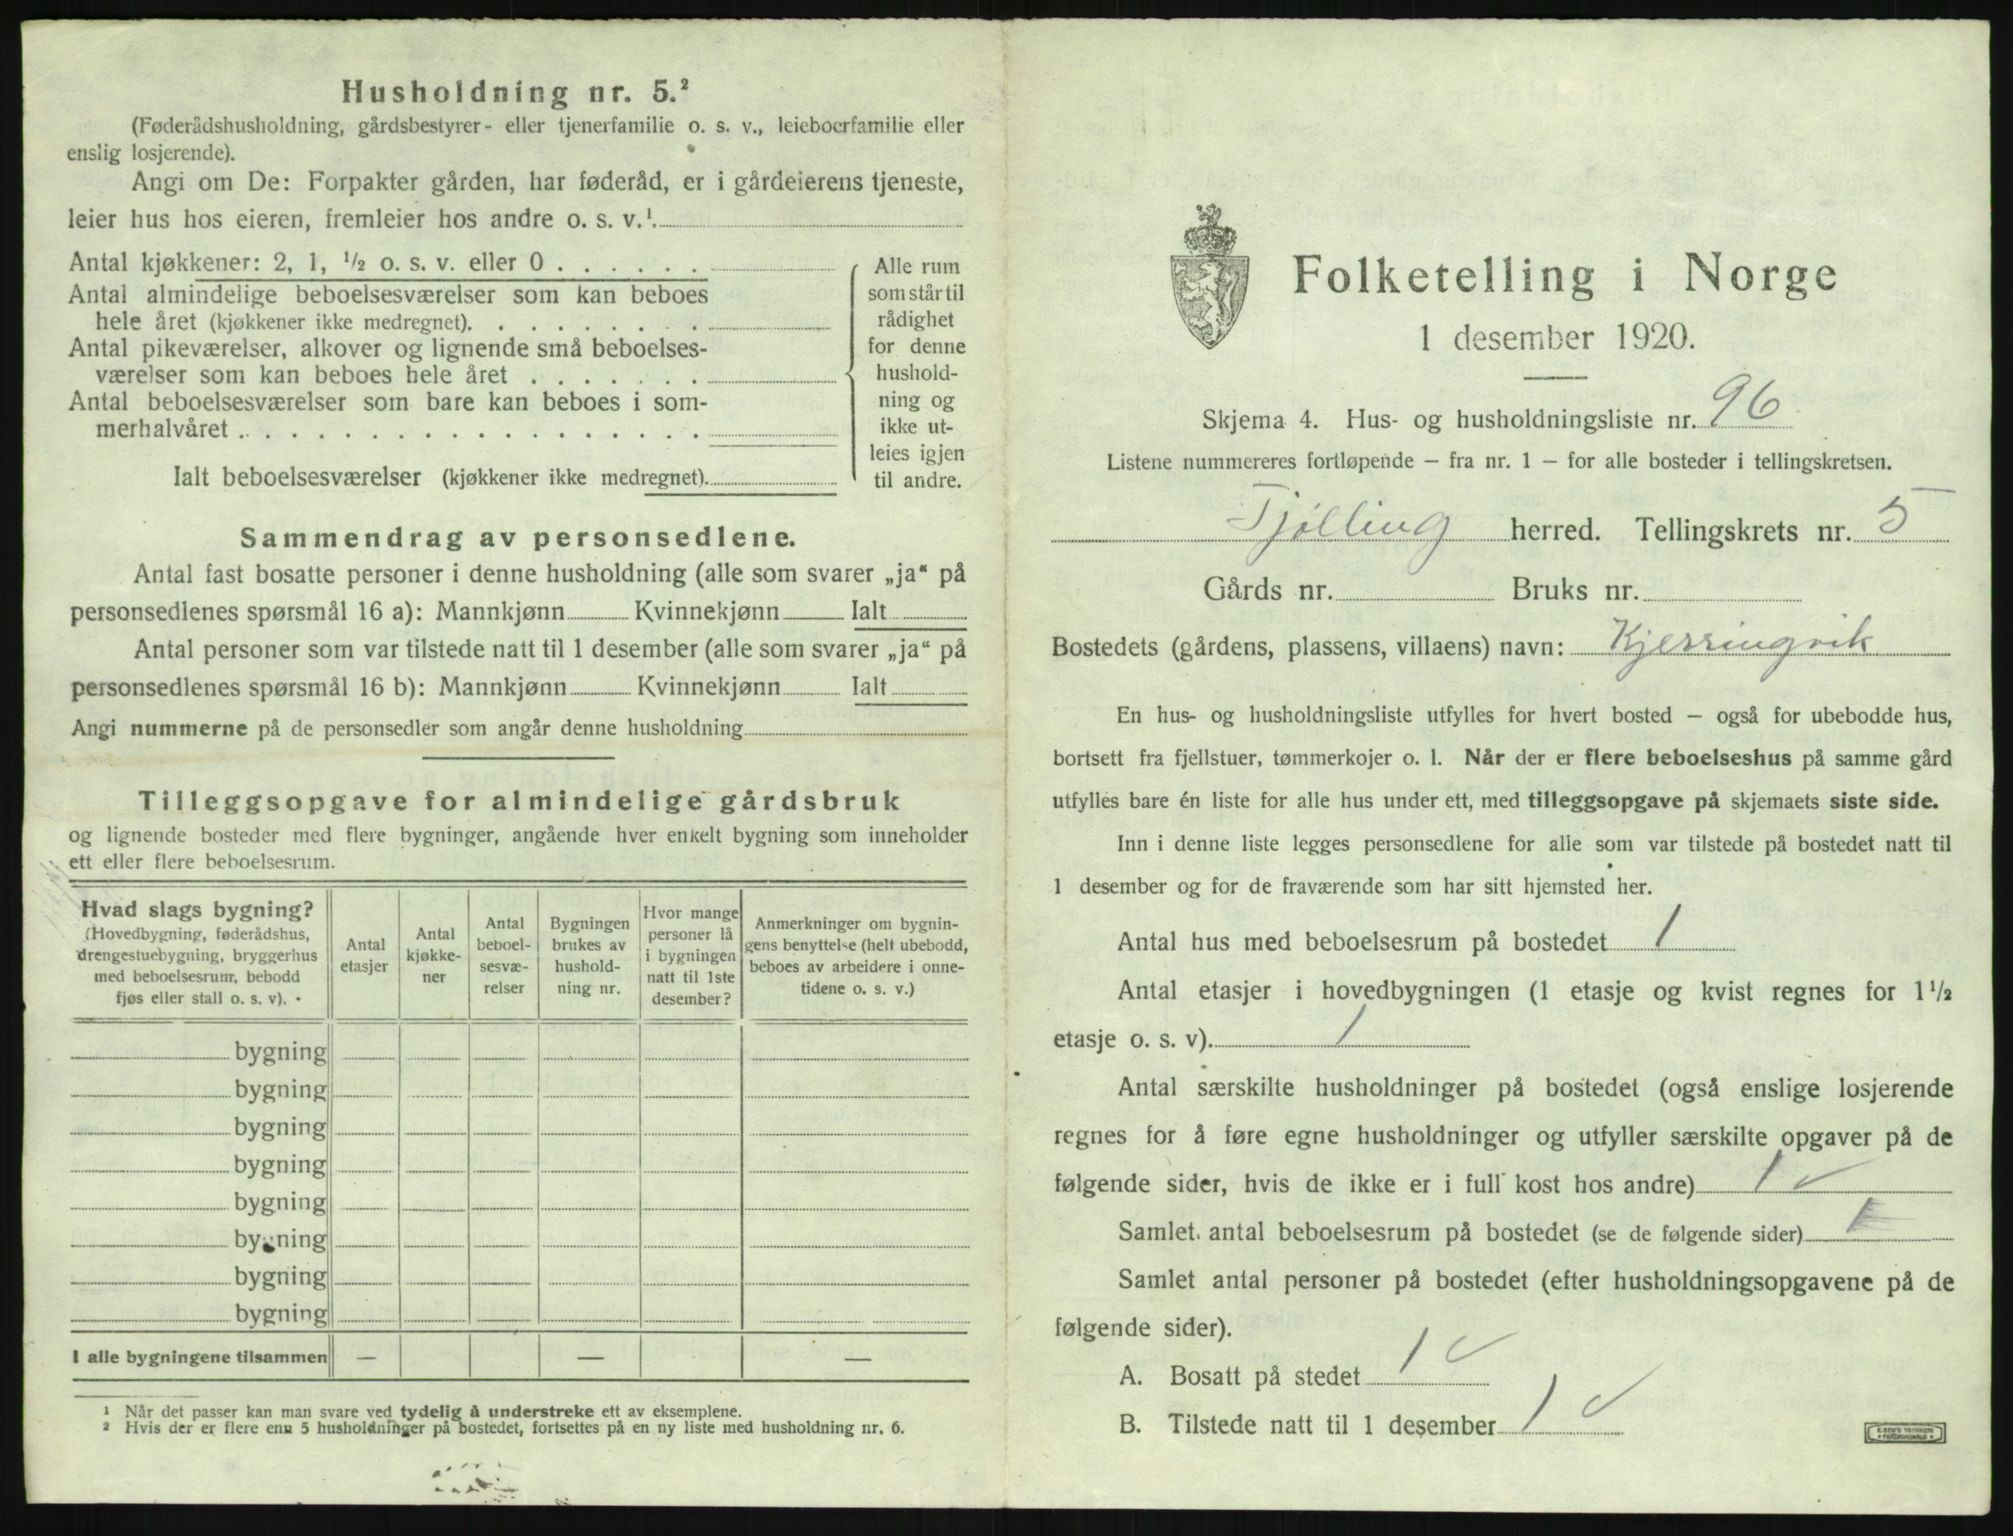 Husholdning nr. 5.²
(Føderådshusholdning, gårdsbestyrer- eller tjenerfamilie o. s. v., leieboerfamilie eller
enslig losjerende).
Angi om De: Forpakter gården, har føderåd, er i gårdeierens tjeneste,
leier hus hos eieren, fremleier hos andre o. s. v.¹.
Antal kjøkkener: 2, 1, ½ o. s. v. eller 0 . . . . . .
Antal almindelige beboelsesværelser som kan beboes
hele året (kjøkkener ikke medregnet). . . . . . . . .
Antal pikeværelser, alkover og lignende små beboelses-
værelser som kan beboes hele året . . . . . . .
Antal beboelsesværelser som bare kan beboes i som-
merhalvåret . . . . . . . . . . . . . . . . . .
Ialt beboelsesværelser (kjøkkener ikke medregnet).
Alle rum
som står til
rådighet
for denne
hushold-
ning og
ikke ut-
leies igjen
til andre.
Sammendrag av personsedlene.
Antal fast bosatte personer i denne husholdning (alle som svarer „ja“ på
personsedlenes spørsmål 16 a): Mannkjønn Kvinnekjønn Ialt
Antal personer som var tilstede natt til 1 desember (alle som svarer „ja“ på
personsedlenes spørsmål 16 b): Mannkjønn Kvinnekjønn Ialt
Angi nummerne på de personsedler som angår denne husholdning
Tilleggsopgave for almindelige gårdsbruk
og lignende bosteder med flere bygninger, angående hver enkelt bygning som inneholder
ett eller flere beboelsesrum.
Hvad slags bygning?
(Hovedbygning, føderådshus,
drengestuebygning, bryggerhus
med beboelsesrum, bebodd
fjøs eller stall o. s. v).
Antal
etasjer
Antal
kjøkke-
ner
Antal
beboel-
sesvæ-
relser
Bygningen
brukes av
hushold-
ning nr.
Hvor mange
personer lå
i bygningen
natt til 1ste
desember?
Anmerkninger om bygnin-
gens benyttelse (helt ubebodd,
beboes av arbeidere i onne-
tidene o. s. v.)
bygning
bygning
bygning
bygning
bygning
bygning
bygning
bygning
I alle bygningene tilsammen — — —
¹ Når det passer kan man svare ved tydelig å understreke ett av eksemplene.
² Hvis der er flere enn 5 husholdninger på bostedet, fortsettes på en ny liste med husholdning nr. 6.
Folketelling i Norge
1 desember 1920.
Skjema 4. Hus- og husholdningsliste nr. 96
Listene nummereres fortløpende – fra nr. 1 – for alle bosteder i tellingskretsen.
Tjølling herred. Tellingskrets nr. 5
Gårds nr. Bruks nr.
Bostedets (gårdens, plassens, villaens) navn: Kjerringvik
En hus- og husholdningsliste utfylles for hvert bosted – også for ubebodde hus,
bortsett fra fjellstuer, tømmerkojer o. l. Når der er flere beboelseshus på samme gård
utfylles bare én liste for alle hus under ett, med tilleggsopgave på skjemaets siste side.
Inn i denne liste legges personsedlene for alle som var tilstede på bostedet natt til
1 desember og for de fraværende som har sitt hjemsted her.
Antal hus med beboelsesrum på bostedet 1
Antal etasjer i hovedbygningen (1 etasje og kvist regnes for 1½
etasje o. s. v). 1
Antal særskilte husholdninger på bostedet (også enslige losjerende
regnes for å føre egne husholdninger og utfyller særskilte opgaver på de
følgende sider, hvis de ikke er i full kost hos andre) 1 ✓
Samlet antal beboelsesrum på bostedet (se de følgende sider)
Samlet antal personer på bostedet (efter husholdningsopgavene på de
følgende sider).
A. Bosatt på stedet 1 ✓
B. Tilstede natt til 1 desember 1 ✓